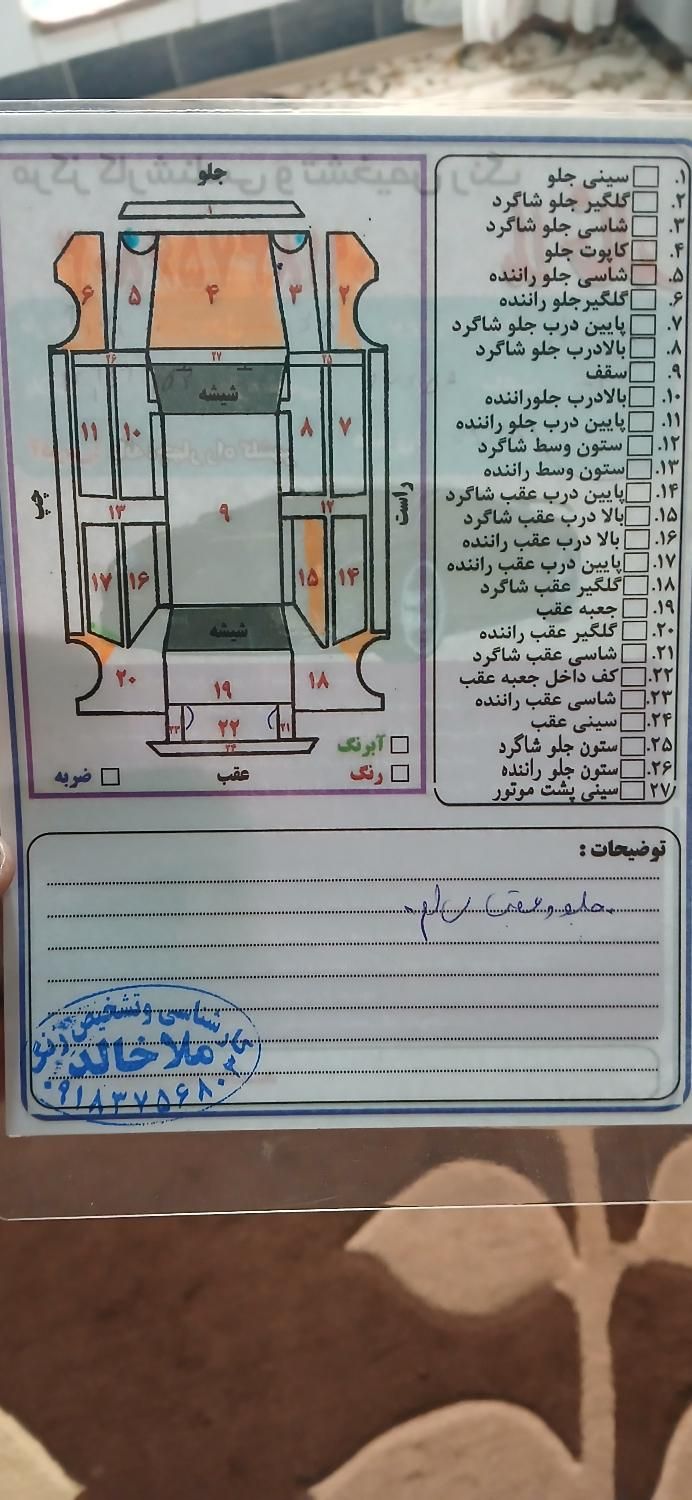 جلو
۱
۶
۵
۴
۳
۲
۲۶
۲۷
۲۵
شیشه
۱۱
۱۰
۸
۷
چپ
راست
۱۳
۹
۱۲
۱۷
۱۶
۱۵
۱۴
شیشه
۲۰
۱۹
۱۸
۲۳
۲۲
۲۱
۲۴
آبرنگ
ضربه
عقب
رنگ
۱. سینی جلو
۲. گلگیر جلو شاگرد
۳. شاسی جلو شاگرد
۴. کاپوت جلو
۵. شاسی جلو راننده
۶. گلگیرجلو راننده
۷. پایین درب جلو شاگرد
۸. بالادرب جلو شاگرد
۹. سقف
۱۰. بالادرب جلوراننده
۱۱. پایین درب جلو راننده
۱۲. ستون وسط شاگرد
۱۳. ستون وسط راننده
۱۴. پایین درب عقب شاگرد
۱۵. بالا درب عقب شاگرد
۱۶. بالا درب عقب راننده
۱۷. پایین درب عقب راننده
۱۸. گلگیر عقب شاگرد
۱۹. جعبه عقب
۲۰. گلگیر عقب راننده
۲۱. شاسی عقب شاگرد
۲۲. کف داخل جعبه عقب
۲۳. شاسی عقب راننده
۲۴. سینی عقب
۲۵. ستون جلو شاگرد
۲۶. ستون جلو راننده
۲۷. سینی پشت موتور
توضیحات :
جلو و عقب سالم
کارشناسی و تشخیص رنگ
ملا خالد
۰۹۱۸۳۷۵۶۸۰۳